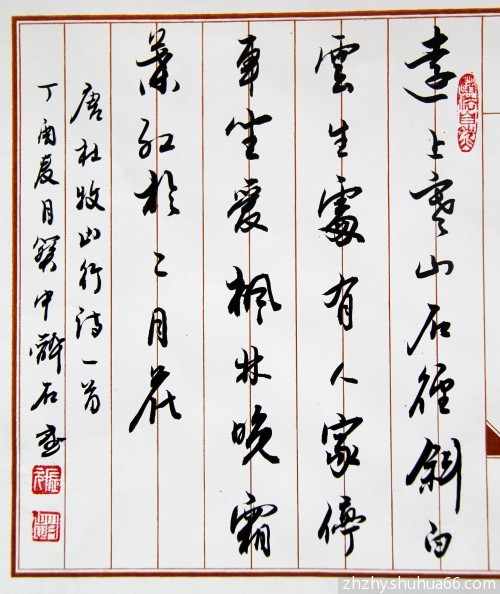 遠上寒山石徑斜白
雲生處有人家停
車坐愛楓林晚霜
葉紅於二月花
唐杜牧山行詩一首
丁酉夏月中石書
zhzhy.shuhua66.com